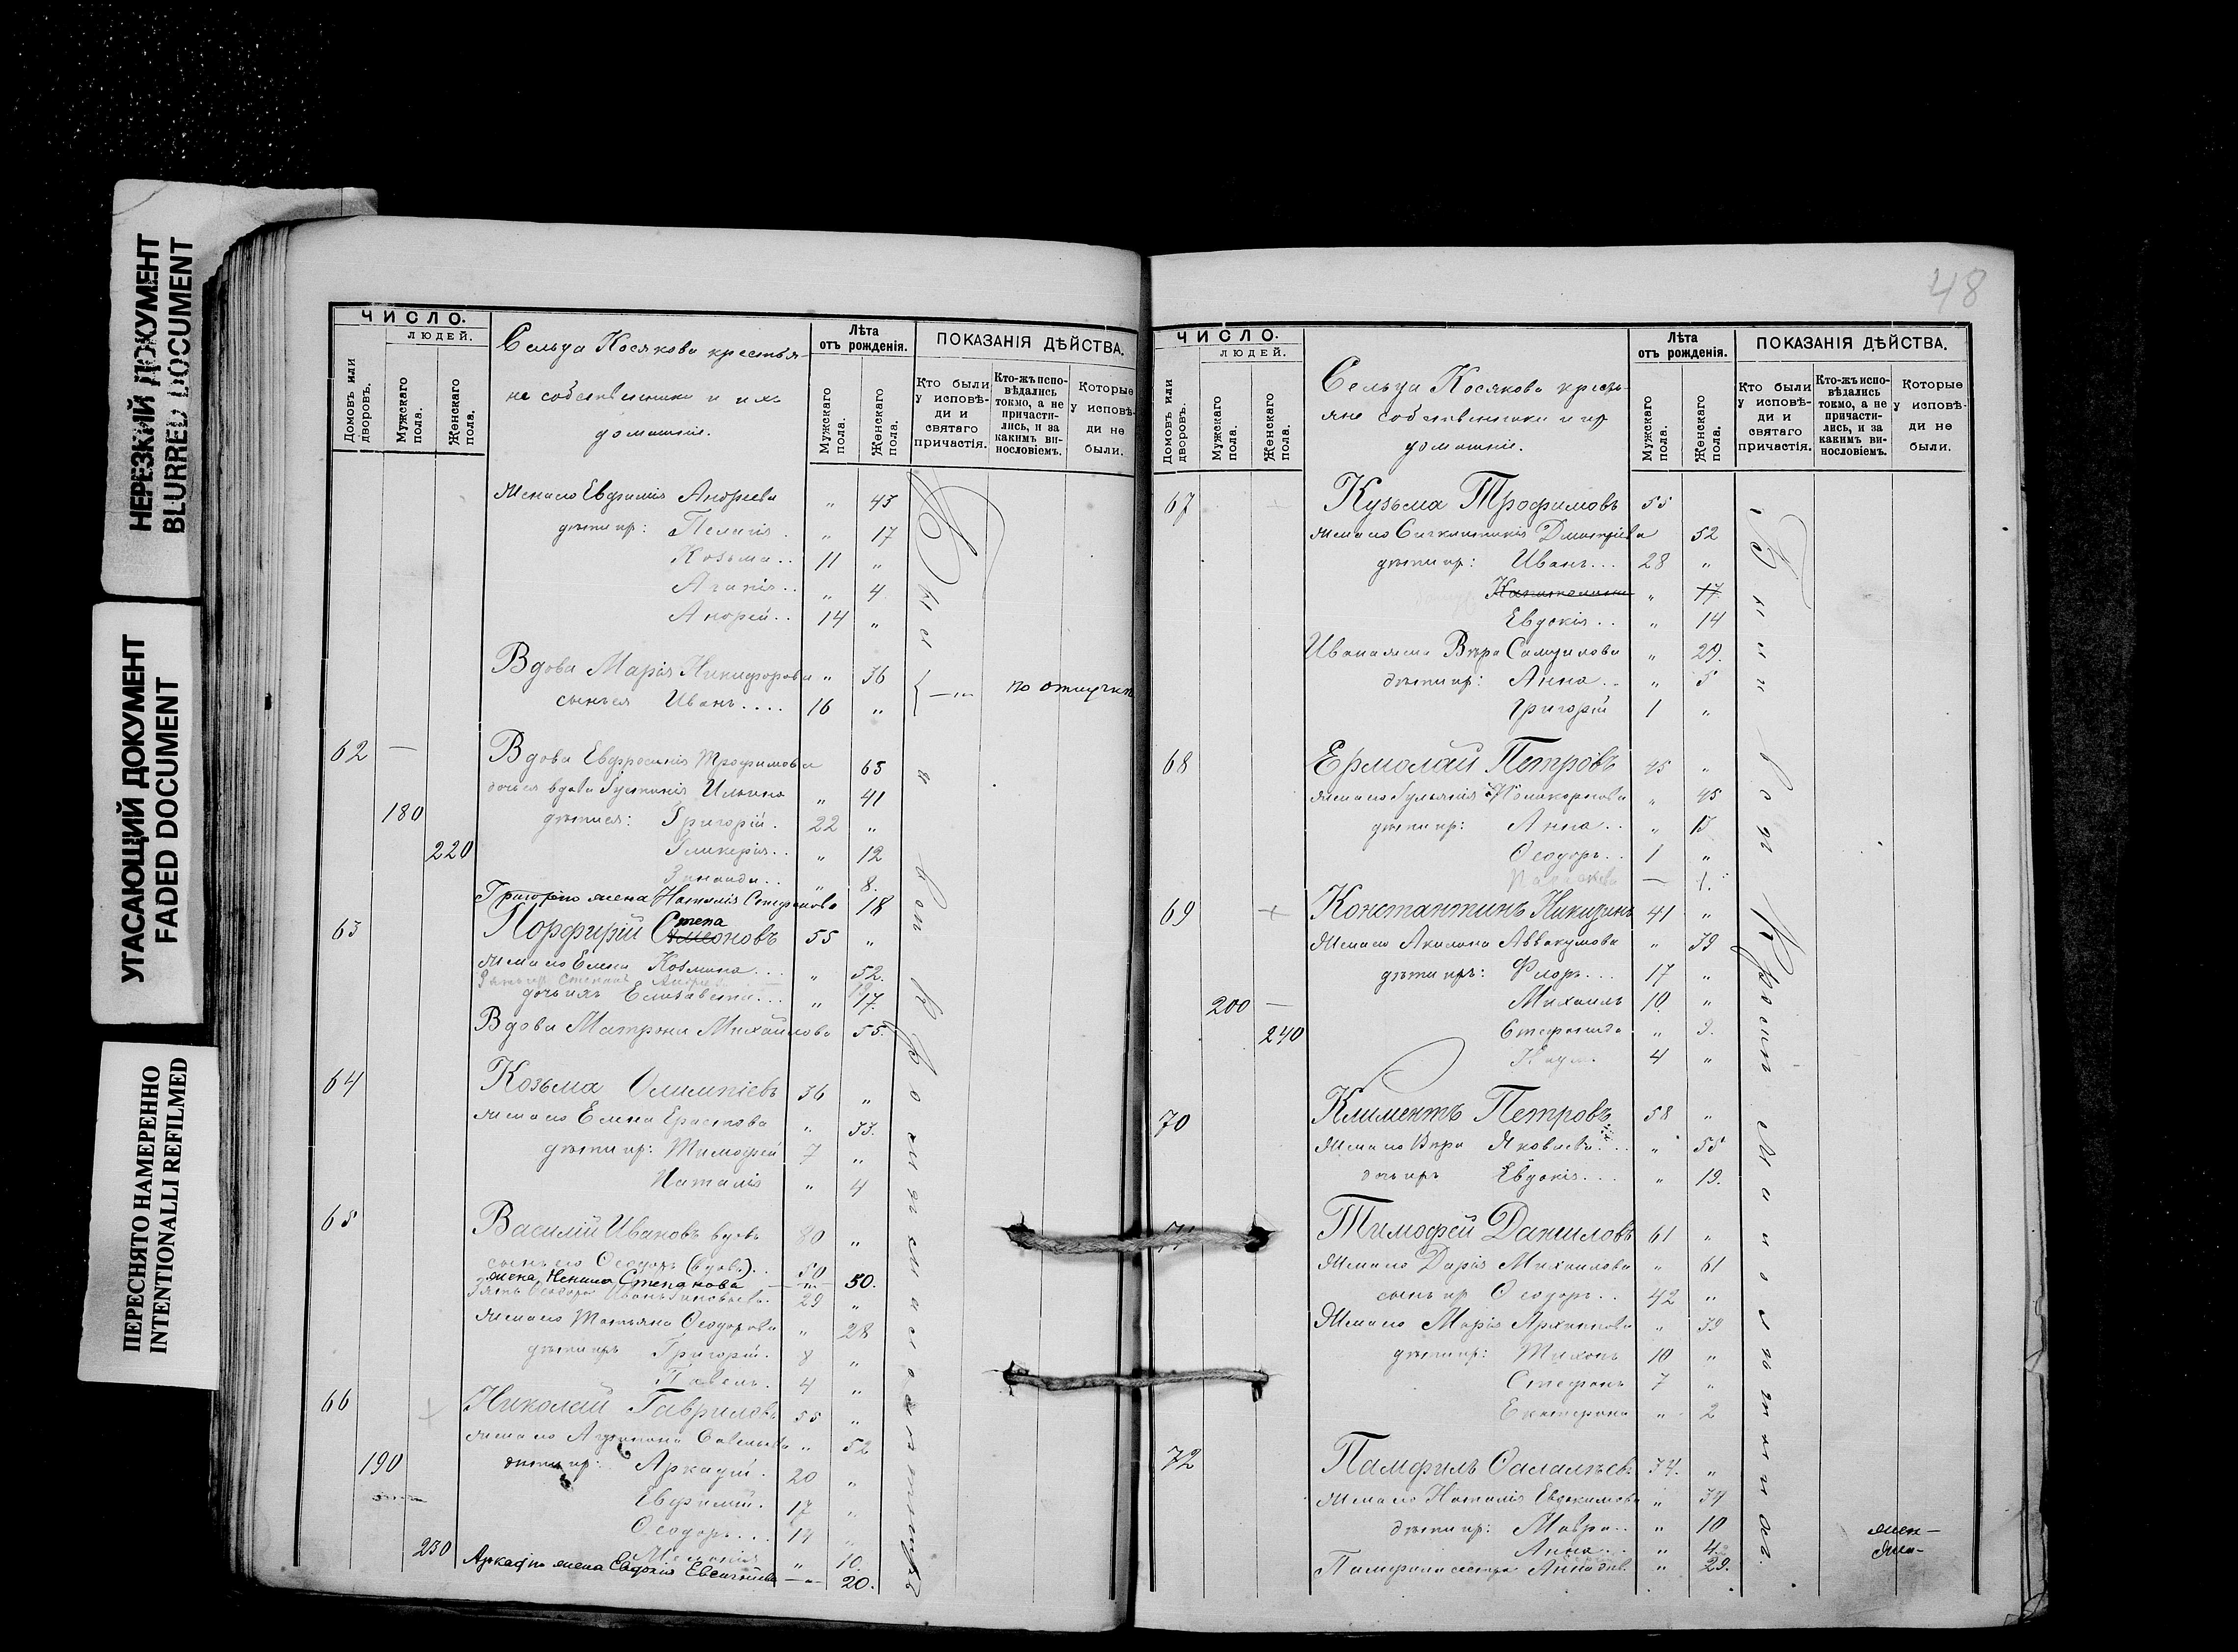 НЕРЕЗКИЙ ДОКУМЕНТ
BLURRED DOCUMENT
УГАСАЮЩИЙ ДОКУМЕНТ
FADED DOCUMENT
ПЕРЕСНЯТО НАМЕРЕННО
INTENTIONALLI REFILMED
ЧИСЛО.
ЛЮДЕЙ.
Домовъ или дворовъ.
Мужскаго пола.
Женскаго пола.
Сельца Косякова крестья-
не собственники и ихъ
домашніе.
Лѣта
отъ рожденія.
Мужскаго пола.
Женскаго пола.
ПОКАЗАНІЯ ДѢЙСТВА.
Кто были
у исповѣ-
ди и
святаго
причастія.
Кто-жъ испо-
вѣдались
токмо, а не
причасти-
лись, и за
какимъ ви-
нословіемъ.
Которые
у исповѣ-
ди не
были.
Жена его Евфимія Андреева " 43
дѣти их: Пелагія . " 17
Козьма . . 11 "
Агапія . . " 4
Андрей . . 14 "
Вдова Марія Никифорова " 36
сынъ ея Иванъ . . . . 16 " по отлучкѣ
62 — Вдова Евфросинія Трофимова 65
дочь ея вдова Іустинія Ильина " 41
180 дѣти ея: Григорій . 22 "
220 Гликерія . . " 12
Зинаида . . " 8.
Григорію жена Наталія Стефанова 18
63 Порфирій Степановъ 55 "
жена его Елена Козмина . . . " 52.
дочь ихъ Елизавета . . . " 17.
Вдова Матрона Михайлова 55.
64 Козьма Олимпіевъ 36 "
жена его Елена Ерастова " 33.
дѣти их: Тимофей 7 "
Наталія " 4
65 Василій Ивановъ вдовъ 80 "
сынъ его Ѳеодоръ (вдовъ) . . 50
жена Степанова — " — 50.
29 "
жена его Татьяна Ѳеодорова " 28
дѣти ихъ Григорій . 8 "
Павелъ . 4 "
66 Николай Гавриловъ 55 "
жена его Савельева " 52
190 дѣти их: Аркадій . 20 "
Евфимій . 17 "
Ѳеодоръ . . . 14 "
230 " 10.
Аркадію жена Евдокія Евсигніева — " — 20.
48
ЧИСЛО.
ЛЮДЕЙ.
Домовъ или дворовъ.
Мужскаго пола.
Женскаго пола.
Сельца Косякова кресть-
яне собственники и их
домашніе.
Лѣта
отъ рожденія.
Мужскаго пола.
Женскаго пола.
ПОКАЗАНІЯ ДѢЙСТВА.
Кто были
у исповѣ-
ди и
святаго
причастія.
Кто-жъ испо-
вѣдались
токмо, а не
причасти-
лись, и за
какимъ ви-
нословіемъ.
Которые
у исповѣ-
ди не
были.
67 Кузьма Трофимовъ 55
жена его Синклитикія Дмитріева 52
дѣти их: Иванъ . . . 28 "
Капитолина " 17.
Евдокія . . " 14
Ивана жена Вѣра Самуилова " 29.
дѣти их: Анна . . " 5
Григорій 1 "
68 Ермолай Петровъ 45 "
жена его Іульянія Поликарпова " 45
дѣти их: Анна . . " 13
Ѳеодоръ . . 1 "
— 1.
69 Константинъ Никитинъ 41 "
Жена его Акилина Аввакумова " 39
дѣти ихъ: Флоръ . . . 17 "
200 — Михаилъ 10. "
240 Стефанида " 9.
Наум. 4 "
70 Климентъ Петровъ 58 "
Жена его Вѣра Яковлева . . . " 55
дочь ихъ Евдокія . . . " 19.
71 Тимофей Даниловъ 61 "
Жена его Дарія Михаилова " 61
сынъ их Ѳеодоръ . . 42 "
Жена его Марія Архипова " 39
дѣти их: Тихонъ 10 "
Стефанъ 7 "
Екатерина " 2
72 Памфилъ Ѳалалѣевъ 34. "
Жена его Наталія Евдокимова " 34
дѣти их: Мавра . . " 10
Анна . . " 4.
Памфила сестра Анна дѣв. " 29.